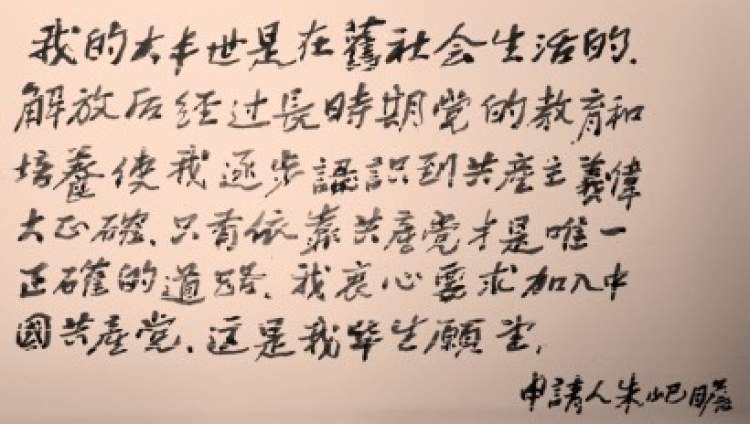 我的大半世是在舊社会生活的.
解放后经过長時期党的教育和
培養使我逐步認識到共産主義偉
大正確、只有依靠共産党才是唯一
正確的道路、我衷心要求加入中
國共産党、这是我毕生願望,
申請人朱屺瞻